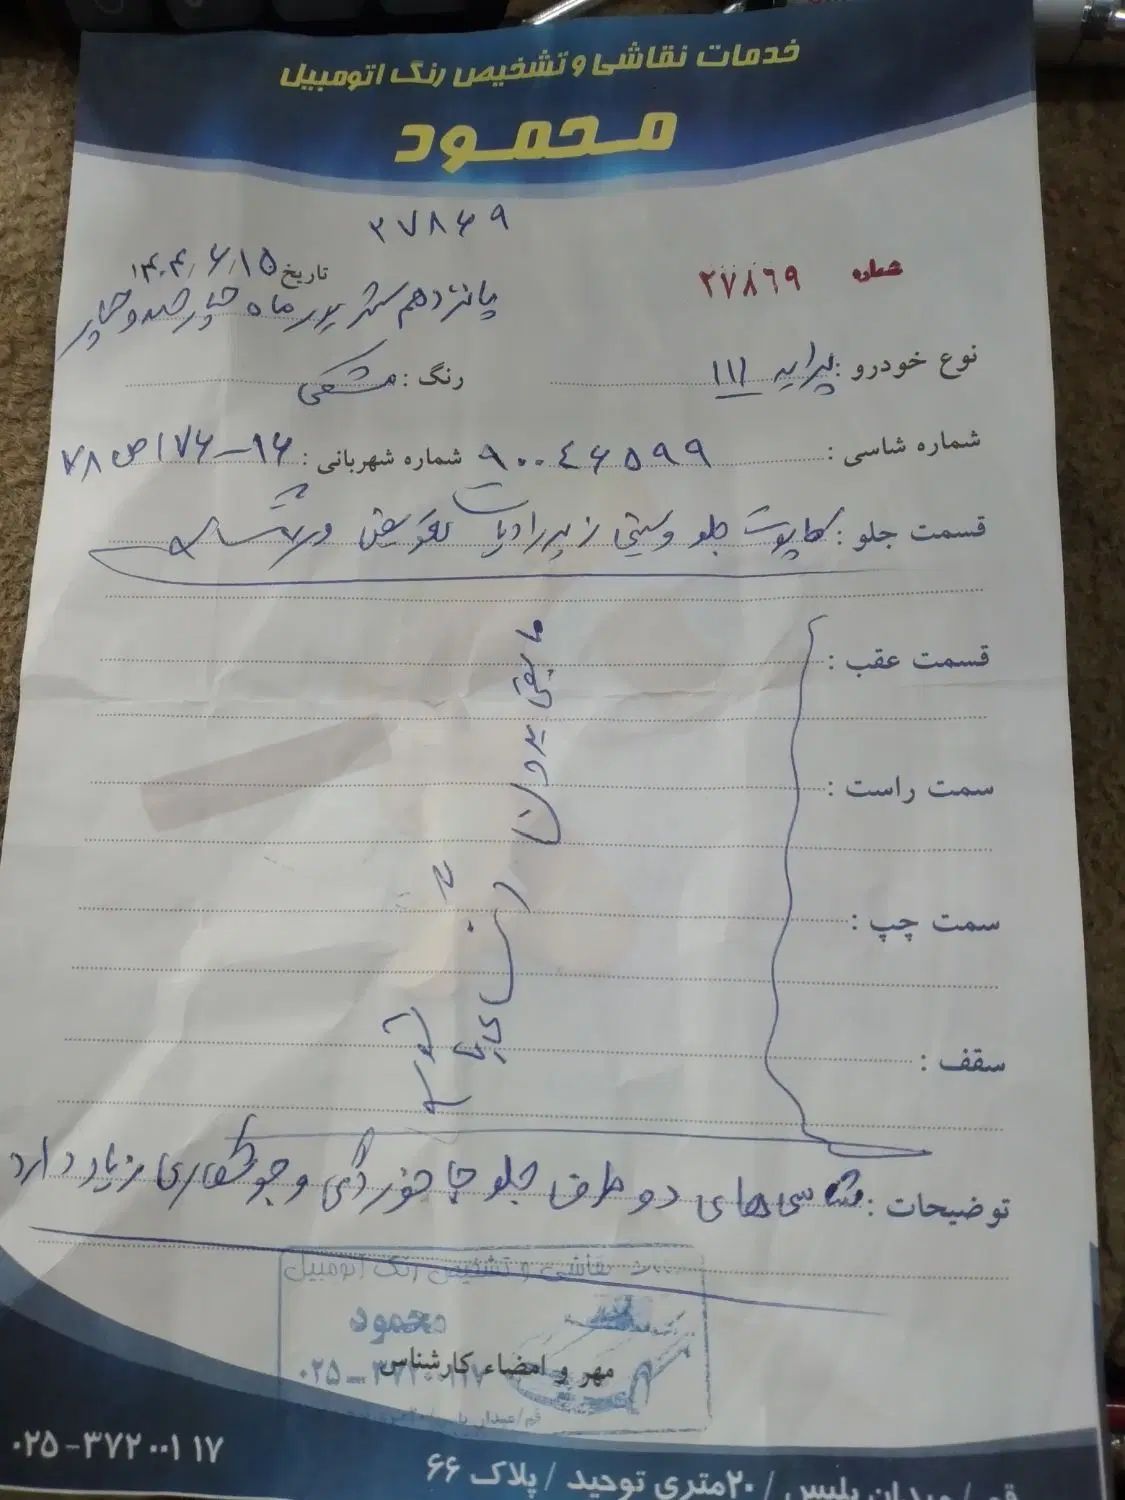 خدمات نقاشی و تشخیص رنگ اتومبیل
محمود
۲۷۸۶۹
شماره ۲۷۸۶۹
تاریخ ۱۴۰۴/۶/۱۵
پانزدهم شهریور ماه چهارصد و چهار
نوع خودرو : پراید ۱۱۱ رنگ : مشکی
شماره شاسی : ۹۰۰۴۶۵۹۹ شماره شهربانی : ۱۶-۱۷۶ص۷۸
قسمت جلو : کاپوت جلو و سینی زیر رادیات تعویض و رنگ شده
قسمت عقب :
سمت راست :
سمت چپ :
سقف :
مابقی بدون رنگ
توضیحات : شاسی های دو طرف جلو جا خوردگی و جوشکاری زیاد دارد
نقاشی و تشخیص رنگ اتومبیل
محمود
مهر و امضاء کارشناس
۰۲۵-۳۷۲۰۰۱۱۷
قم / میدان پلیس / ۲۰متری توحید / پلاک ۶۶